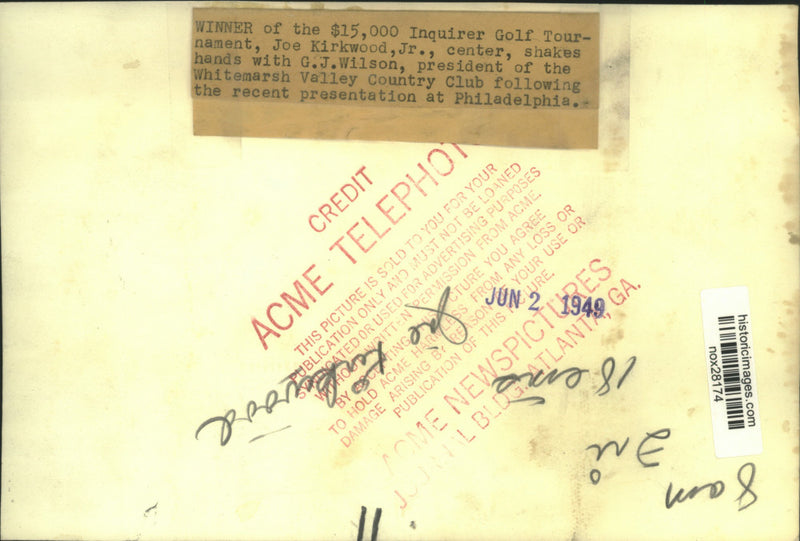 WINNER of the $15,000 Inquirer Golf Tour-
nament, Joe Kirkwood,Jr., center, shakes
hands with G.J.Wilson, president of the
Whitemarsh Valley Country Club following
the recent presentation at Philadelphia.
CREDIT
ACME TELEPHOT
THIS PICTURE IS SOLD TO YOU FOR YOUR
PUBLICATION ONLY AND MUST NOT BE LOANED
SYNDICATED OR USED FOR ADVERTISING PURPOSES
WITHOUT WRITTEN PERMISSION FROM ACME.
BY ACCEPTING PICTURE YOU AGREE
TO HOLD ACME HARMLESS FROM ANY LOSS OR
DAMAGE ARISING BY REASON OF YOUR USE OR
PUBLICATION OF THIS PICTURE.
ACME NEWSPICTURES
JOURNAL BLDG. ATLANTA, GA.
JUN 2 1949
Joe Kirkwood
18 ems
Fri
8 am
11
historicimages.com
nox28174